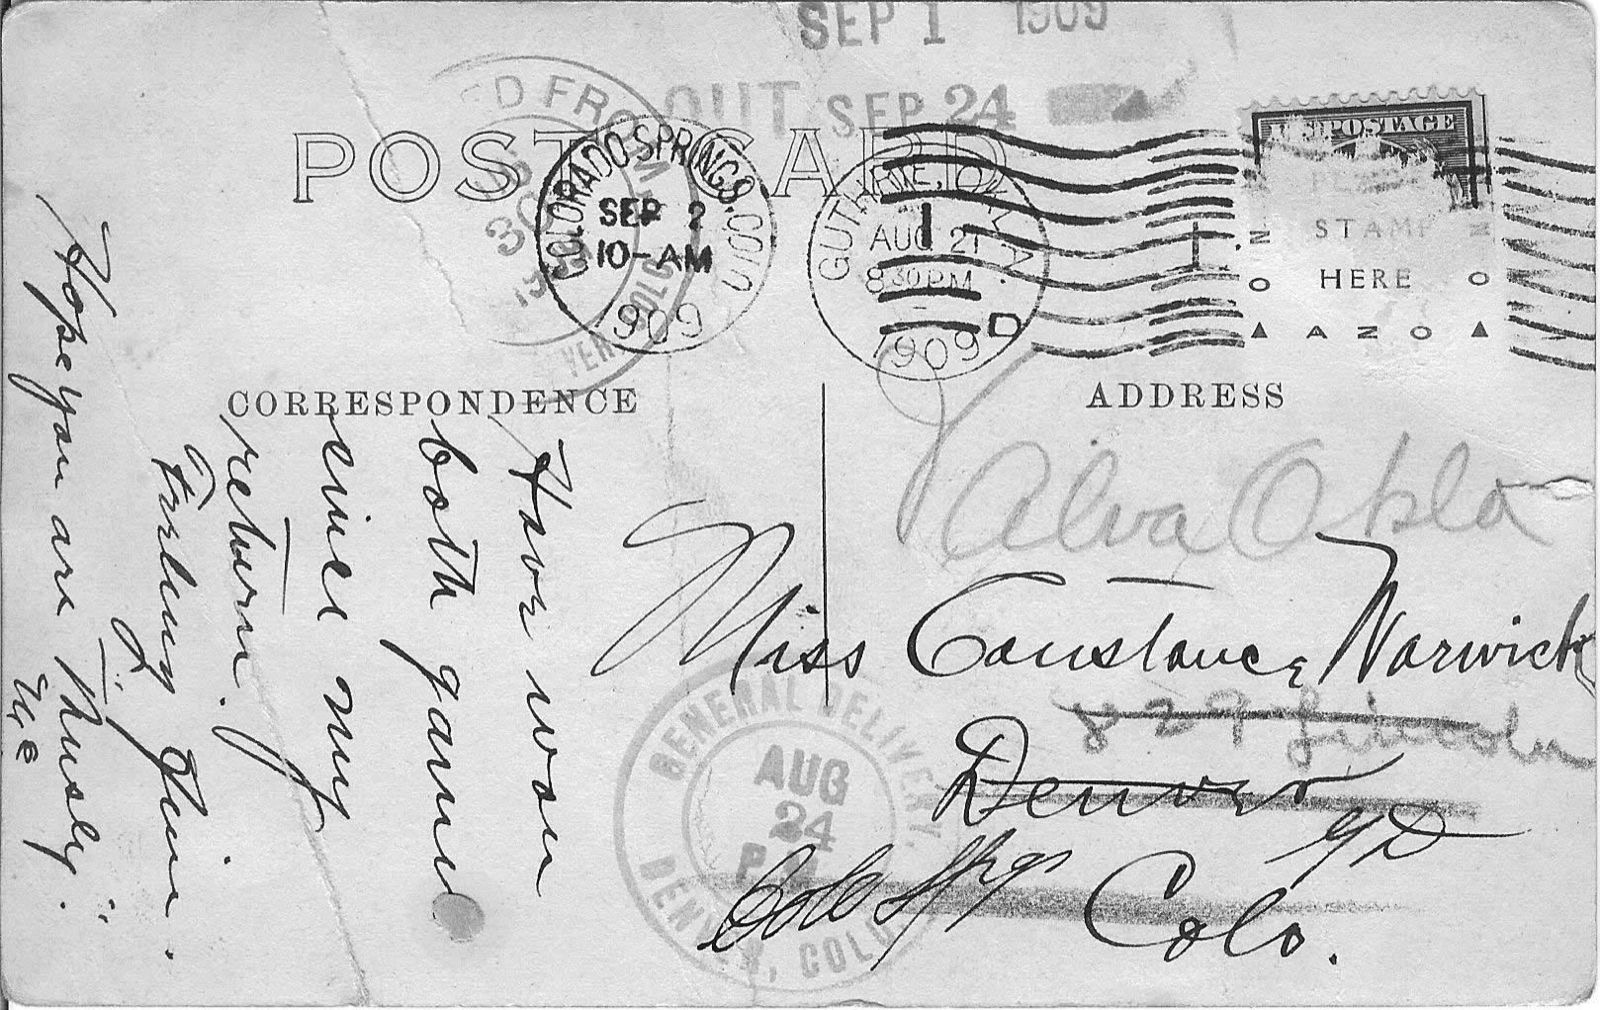 SEP 1 1909
OUT SEP 24
POST CARD
D FROM
30
COLORADO SPRINGS, COLO
SEP 2
10-AM
1909
GUTHRIE, OKLA.
AUG 21
8 30 PM
1909
D
U.S. POSTAGE
STAMP
HERE
AZO
CORRESPONDENCE
ADDRESS
Have won
both games
since my
return.
Feeling fine.
Hope you are
Alva Okla
Miss Constance Warwick
829 Lincoln
Denver
GD
Colo Spgs
Colo.
GENERAL DELIVERY,
AUG
24
P.M.
DENVER, COLO.